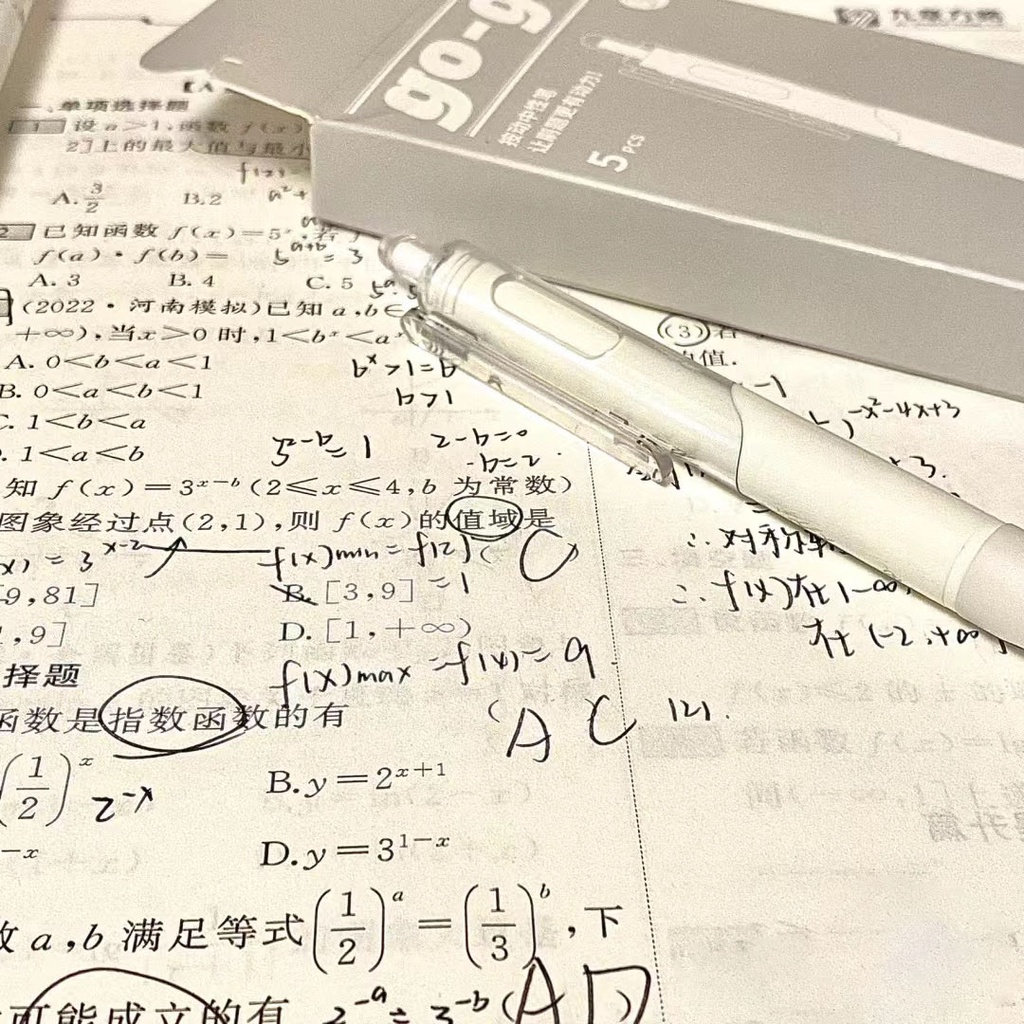 go-g
按动中性笔
让刷题更有动力!
5 PCS
【A
一、单项选择题
1 设a>1,函数 f(x)
2]上的最大值与最小
f(2)-
A. 3/2 B.2 a²+
2 已知函数 f(x)=5ˣ,若 f
f(a)·f(b)= 5ᵃ⁺ᵇ=3
A. 3 B. 4 C. 5 5ᵃ·5
(2022·河南模拟)已知 a,b∈
+∞),当x>0时,1<bˣ<aˣ
A. 0<b<a<1 bˣ>1=b
B. 0<a<b<1 b>1
C. 1<b<a
. 1<a<b
2-b=0
-b=2
知 f(x)=3ˣ⁻ᵇ(2≤x≤4,b 为常数)
图象经过点(2,1),则 f(x)的值域是
x)=3ˣ⁻² f(x)min=f(2)( C
9,81] B. [3,9] =1
,9] D. [1,+∞)
f(x)max=f(4)=9
择题
函数是指数函数的有
(A C
(1/2)ˣ 2⁻ˣ B.y=2ˣ⁺¹
⁻ˣ D.y=3¹⁻ˣ
数 a,b 满足等式(1/2)ᵃ=(1/3)ᵇ,下
可能成立的有 2⁻ᵃ=3⁻ᵇ(AD)
(3)若
值.
-1
)⁻ˣ²⁻⁴ˣ⁺³
+3.
∴对称轴
∴f(x)在(-∞,
在(-2,+∞
(2).